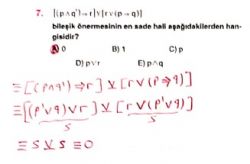 7. [(p∧q')⇒r]⊻[r∨(p⇒q)]
bileşik önermesinin en sade hali aşağıdakilerden han-
gisidir?
A) 0 B) 1 C) p
D) p∨r E) p∧q
≡[(p∧q')⇒r]⊻[r∨(p⇒q)]
≡[(p'∨q)∨r]⊻[r∨(p'∨q)]
S S
≡S⊻S≡0